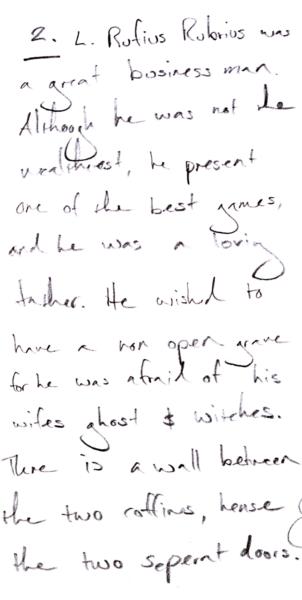 2. L. Rufius Rubrius was
a great business man.
Although he was not the
wealthiest, he present
one of the best games,
and he was a loving
father. He wished to
have a non open grave
for he was afraid of his
wifes ghost & witches.
There is a wall between
the two coffins, hense
the two seperat doors.